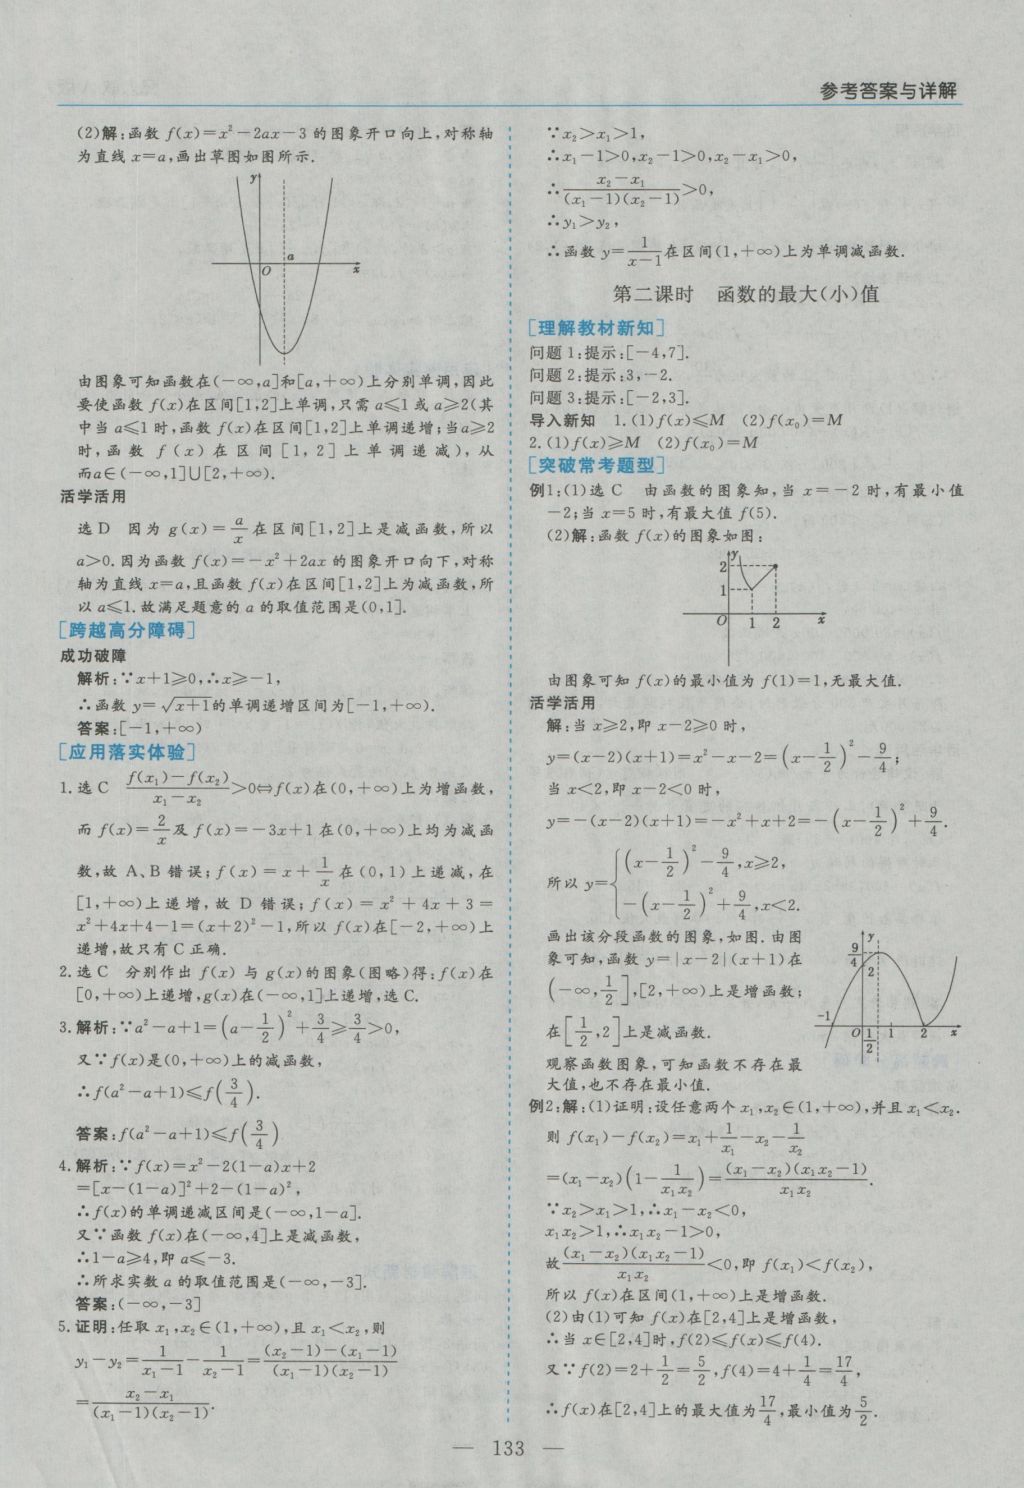 参考答案与详解
(2)解:函数 f(x)=x²-2ax-3 的图象开口向上,对称轴
为直线 x=a,画出草图如图所示.
y
a
O
x
由图象可知函数在(-∞,a]和[a,+∞)上分别单调,因此
要使函数 f(x)在区间[1,2]上单调,只需 a≤1 或 a≥2(其
中当 a≤1 时,函数 f(x)在区间[1,2]上单调递增;当a≥2
时,函数 f(x)在区间[1,2]上单调递减),从
而a∈(-∞,1]∪[2,+∞).
活学活用
选 D 因为 g(x)=a/x 在区间[1,2]上是减函数,所以
a>0.因为函数 f(x)=-x²+2ax 的图象开口向下,对称
轴为直线 x=a,且函数 f(x)在区间[1,2]上为减函数,所
以 a≤1.故满足题意的 a 的取值范围是(0,1].
[跨越高分障碍]
成功破障
解析:∵x+1≥0,∴x≥-1,
∴函数 y=√(x+1)的单调递增区间为[-1,+∞).
答案:[-1,+∞)
[应用落实体验]
1.选 C (f(x₁)-f(x₂))/(x₁-x₂)>0⇔f(x)在(0,+∞)上为增函数,
而 f(x)=2/x及 f(x)=-3x+1 在(0,+∞)上均为减函
数,故 A、B 错误;f(x)=x+1/x在(0,1)上递减,在
[1,+∞)上递增,故 D 错误;f(x)=x²+4x+3=
x²+4x+4-1=(x+2)²-1,所以 f(x)在[-2,+∞)上
递增,故只有 C 正确.
2.选 C 分别作出 f(x)与 g(x)的图象(图略)得:f(x)在
[0,+∞)上递增,g(x)在(-∞,1]上递增,选 C.
3.解析:∵a²-a+1=(a-1/2)²+3/4≥3/4>0,
又∵f(x)是(0,+∞)上的减函数,
∴f(a²-a+1)≤f(3/4).
答案:f(a²-a+1)≤f(3/4)
4.解析:∵f(x)=x²-2(1-a)x+2
=[x-(1-a)]²+2-(1-a)²,
∴f(x)的单调递减区间是(-∞,1-a].
又∵函数 f(x)在(-∞,4]上是减函数,
∴1-a≥4,即 a≤-3.
∴所求实数 a 的取值范围是(-∞,-3].
答案:(-∞,-3]
5.证明:任取 x₁,x₂∈(1,+∞),且 x₁<x₂,则
y₁-y₂=1/(x₁-1)-1/(x₂-1)=((x₂-1)-(x₁-1))/((x₁-1)(x₂-1))
=(x₂-x₁)/((x₁-1)(x₂-1)).
∵x₂>x₁>1,
∴x₁-1>0,x₂-1>0,x₂-x₁>0,
∴(x₂-x₁)/((x₁-1)(x₂-1))>0,
∴y₁>y₂,
∴函数 y=1/(x-1)在区间(1,+∞)上为单调减函数.
第二课时 函数的最大(小)值
[理解教材新知]
问题 1:提示:[-4,7].
问题 2:提示:3,-2.
问题 3:提示:[-2,3].
导入新知 1.(1)f(x)≤M (2)f(x₀)=M
2.(1)f(x)≥M (2)f(x₀)=M
[突破常考题型]
例1:(1)选 C 由函数的图象知,当 x=-2 时,有最小值
-2;当 x=5 时,有最大值 f(5).
(2)解:函数 f(x)的图象如图:
y
2
1
O 1 2 x
由图象可知 f(x)的最小值为 f(1)=1,无最大值.
活学活用
解:当 x≥2,即 x-2≥0 时,
y=(x-2)(x+1)=x²-x-2=(x-1/2)²-9/4;
当 x<2,即 x-2<0 时,
y=-(x-2)(x+1)=-x²+x+2=-(x-1/2)²+9/4.
所以 y={(x-1/2)²-9/4,x≥2,
-(x-1/2)²+9/4,x<2.
画出该分段函数的图象,如图.由图
象可知,函数 y=|x-2|(x+1)在
(-∞,1/2],[2,+∞)上是增函数;
在[1/2,2]上是减函数.
观察函数图象,可知函数不存在最
大值,也不存在最小值.
y
9/4
2
-1
O 1/2 1 2 x
例2:解:(1)证明:设任意两个 x₁,x₂∈(1,+∞),并且 x₁<x₂.
则 f(x₁)-f(x₂)=x₁+1/x₁-x₂-1/x₂
=(x₁-x₂)(1-1/(x₁x₂))=((x₁-x₂)(x₁x₂-1))/(x₁x₂).
∵x₂>x₁>1,∴x₁-x₂<0,
x₁x₂>1,∴x₁x₂-1>0,
故((x₁-x₂)(x₁x₂-1))/(x₁x₂)<0,即 f(x₁)<f(x₂),
所以 f(x)在区间(1,+∞)上是增函数.
(2)由(1)可知 f(x)在[2,4]上是增函数,
∴当 x∈[2,4]时,f(2)≤f(x)≤f(4).
又∵f(2)=2+1/2=5/2,f(4)=4+1/4=17/4,
∴f(x)在[2,4]上的最大值为17/4,最小值为5/2.
— 133 —